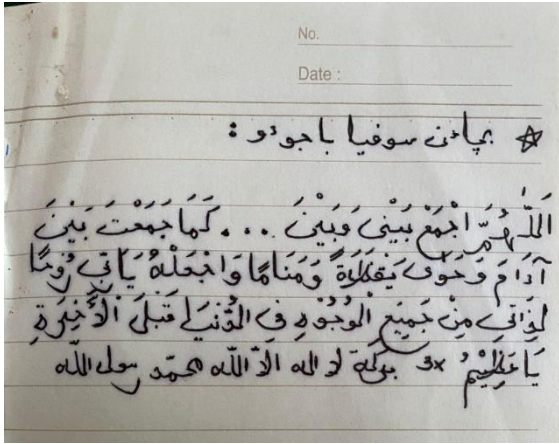 No.
Date :
بچاءن سوفيا باجودو :
اَللّٰهُمَّ اجْمَعْ بَيْنِى وَبَيْنَ ... كَمَا جَمَعْتَ بَيْنَ
آدَامَ وَحَوٰى يَقْظَةً وَمَنَامًا وَاجْعَلْهُ يَاتِى رُوْحًا
لِذَاتِى مِنْ جَمِيْعِ الْوُجُوْهِ فِى الدُّنْيَا قَبْلَ الْأَخِيْرَةِ
يَا عَظِيْمُ 3x بركة لا اله الا الله محمد رسول الله